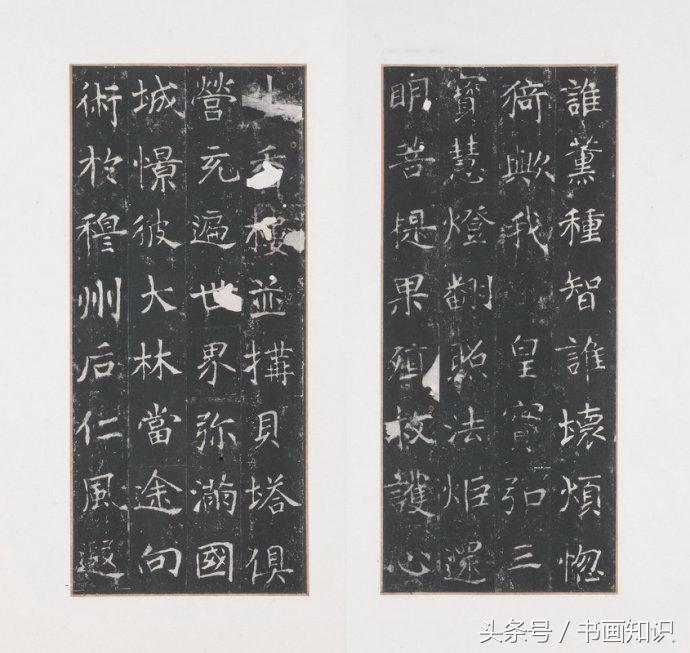 誰薰種智誰壞煩惚
猗歟我皇實弘三
寳慧燈翻照法炬還
明菩提果殖救護心
香樓並搆貝塔俱
營充遍世界弥滿國
城憬彼大林當途向
術於穆州后仁風遐
头条号 / 书画知识